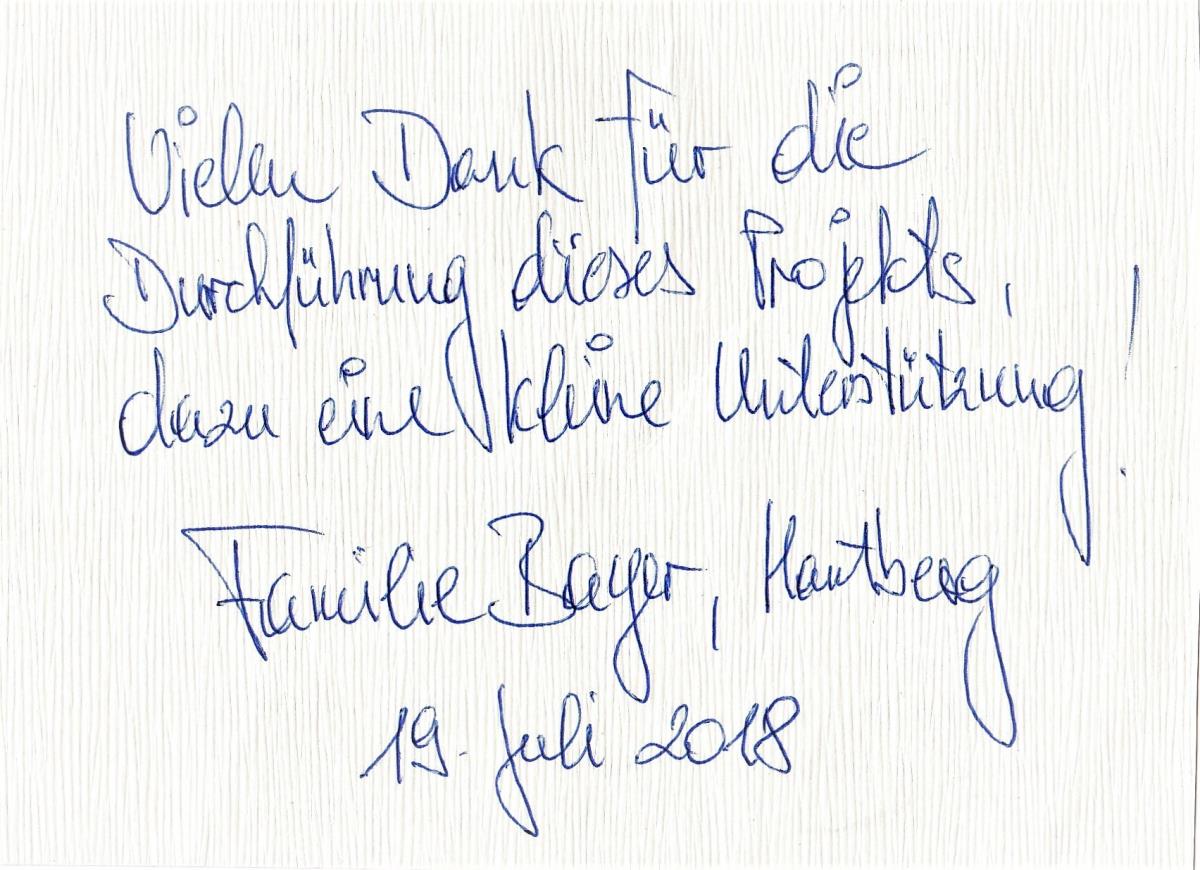 Vielen Dank für die
Durchführung dieses Projekts,
dazu eine kleine Unterstützung!
Familie Bayer, Hautberg
19. Juli 2018